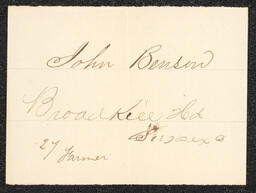 John Benson
Broadkiln Hd
Sussex Co
27 Farmer